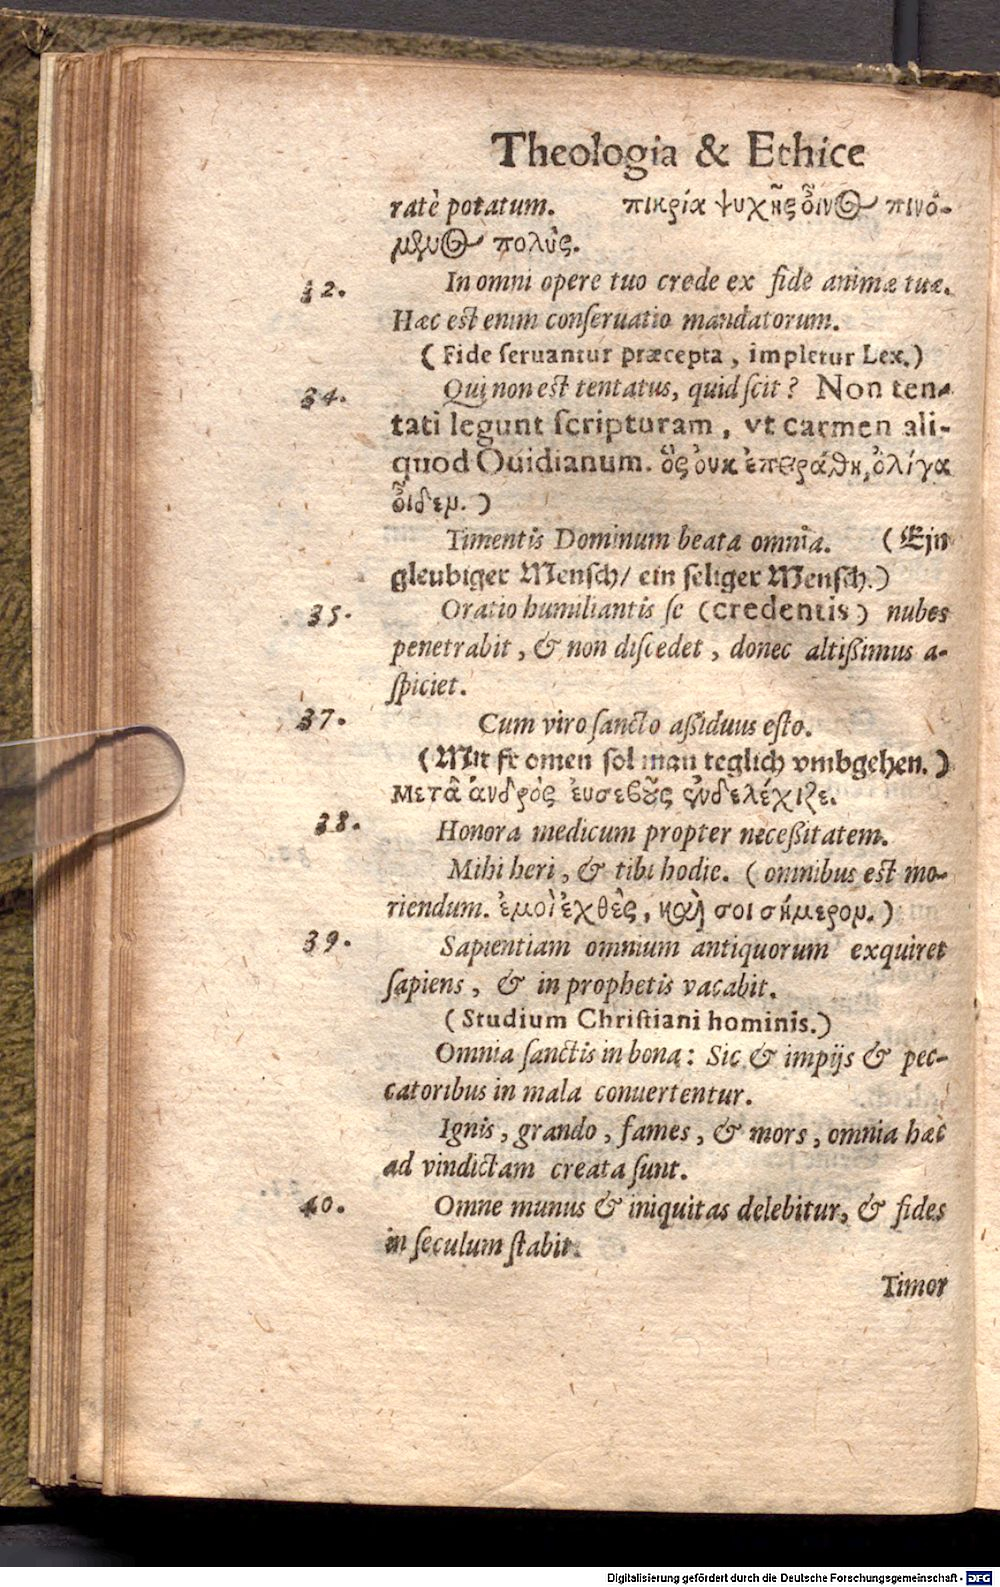 Theologia & Ethice
ratè potatum. πικρία ψυχῆς οἶνος πινό-
μενος πολὺς.
32. In omni opere tuo crede ex fide animæ tuæ.
Hæc est enim conseruatio mandatorum.
( Fide seruantur præcepta, impletur Lex.)
34. Qui non est tentatus, quid scit? Non ten-
tati legunt scripturam, vt carmen ali-
quod Ouidianum. ὃς οὐκ ἐπειράθη, ὀλίγα
οἶδεν. )
Timentis Dominum beata omnia. ( Ein
gleubiger Mensch/ ein seliger Mensch.)
35. Oratio humiliantis se (credentis) nubes
penetrabit, & non discedet, donec altißimus a-
spiciet.
37. Cum viro sancto aßiduus esto.
( Mit fromen sol man teglich vmbgehen. )
Μετὰ ἀνδρὸς ἐυσεβοῦς ἐνδελέχιζε.
38. Honora medicum propter neceßitatem.
Mihi heri, & tibi hodie. ( omnibus est mo-
riendum. ἐμοὶ ἐχθὲς, καὶ σοι σήμερον. )
39. Sapientiam omnium antiquorum exquiret
sapiens, & in prophetis vacabit.
( Studium Christiani hominis.)
Omnia sanctis in bona: Sic & impijs & pec-
catoribus in mala conuertentur.
Ignis, grando, fames, & mors, omnia hæc
ad vindictam creata sunt.
40. Omne munus & iniquitas delebitur, & fides
in seculum stabit.
Timor
Digitalisierung gefördert durch die Deutsche Forschungsgemeinschaft - DFG